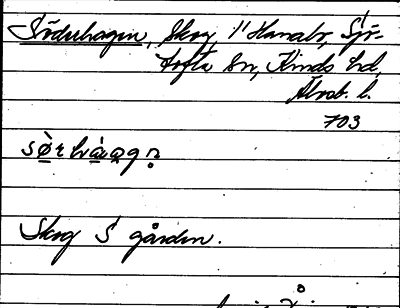 Söderhagen, Skog i Hanabo, Sjö-
tofta sn, Kinds hd,
Älvsb. l.
703
sø̀rhàgn̥
Skog S gården.